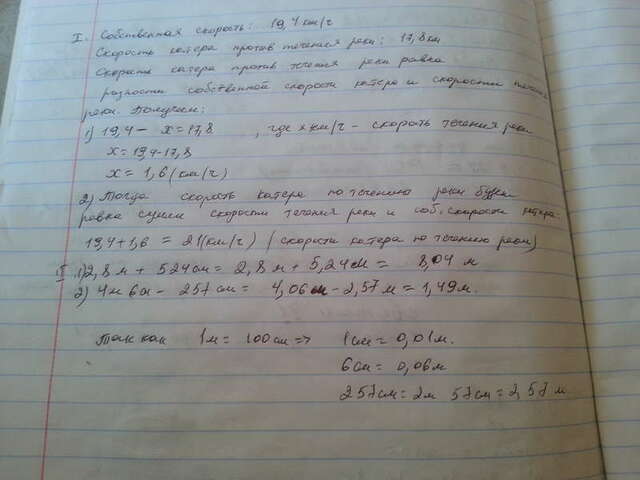 I. Собственная скорость: 19,4 км/ч
Скорость катера против течения реки: 17,8 км
Скорость катера против течения реки равна
разности собственной скорости катера и скорости течения
реки. Получаем:
1) 19,4 - x = 17,8 , где x км/ч - скорость течения реки
x = 19,4-17,8
x = 1,6 (км/ч)
2) Тогда скорость катера по течению реки будет
равна сумме скорости течения реки и соб. скорости катера
19,4+1,6 = 21(км/ч) (скорости катера по течению реки)
II 1) 2,8 м + 524см = 2,8 м + 5,24м = 8,04 м
2) 4м 6см - 257см = 4,06м - 2,57м = 1,49м.
Так как 1м = 100см => 1см = 0,01м.
6см = 0,06м
257см = 2м 57см = 2,57 м